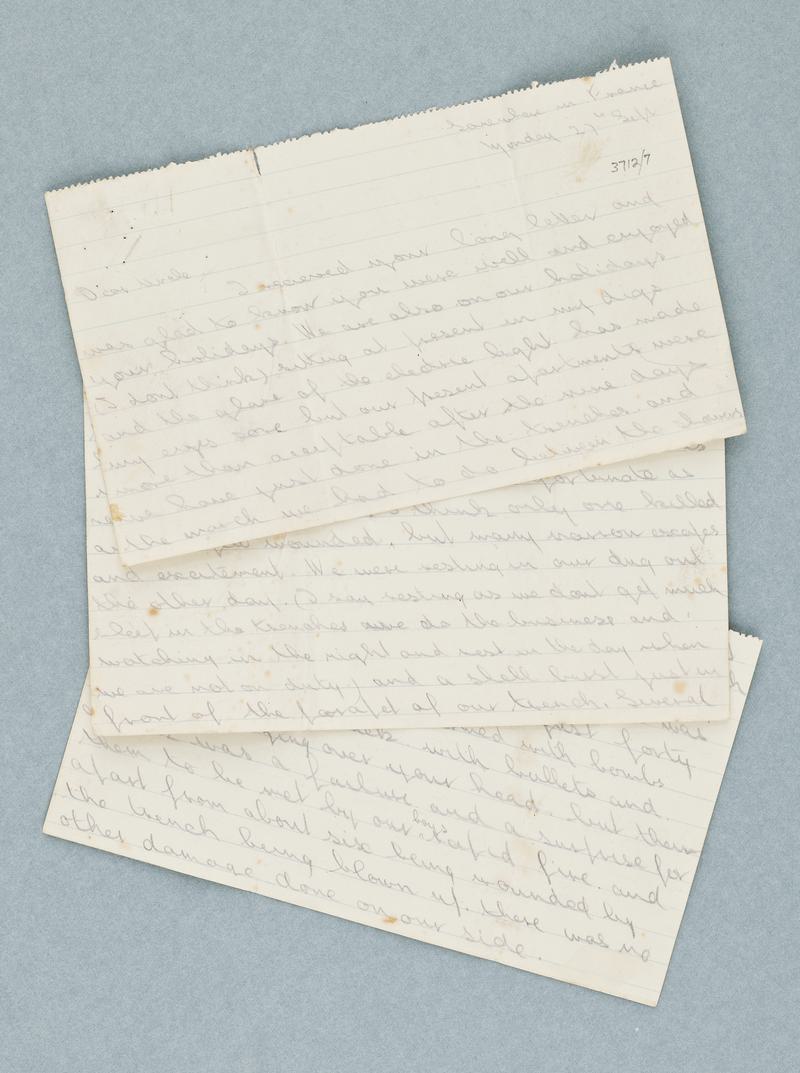 Somewhere in France
Monday 27th Sept
3712/7
Dear Uncle,
I received your long letter and
was glad to know you were well and enjoyed
your holidays. We are also on our holidays
(I dont think) sitting at present in my digs
and the glare of the electric light has made
my eyes sore but our present apartments were
more than acceptable after the nine days
we have just done in the trenches and
the march we had to do between the hours
fortunate as
think only one killed
wounded, but many narrow escapes
and excitement. We were resting in our dug out
the other day. (I say resting as we dont get much
sleep in the trenches we do the business and
watching in the night and rest in the day when
we are not on duty) and a shell burst just in
front of the parapet of our trench. Several
was
with bombs just forty
over your with bullets and
them to be met by our boys rapid fire. and
was a failure and a surprise for
head. but their
apart from about six being wounded by
the trench being blown up. there was no
other damage done on our side.